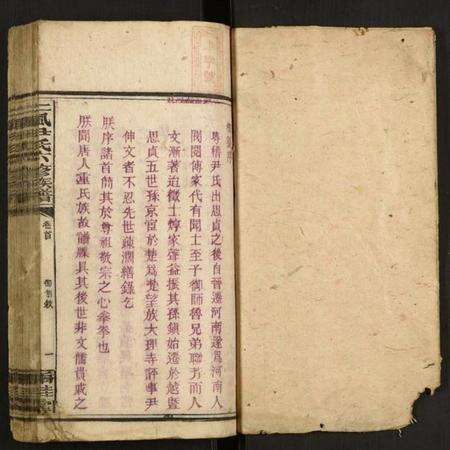 粵稽尹氏出思貞之後自晉遷河南遂為河南人
閥閱傳家代有聞士至子御師魯兄弟聯芳而人
文漸著迨徵士焞家聲益振其孫鎮始遷於越暨
思貞五世孫京宦於楚為楚望族大理寺評事尹
伸文者不忍先世疎濶繕錄乞
朕序諸首簡其於尊祖敬宗之心拳拳也
朕聞唐人重氏族故譜牒具其後世非文儒貴戚之
尹氏六修族譜
卷首
一